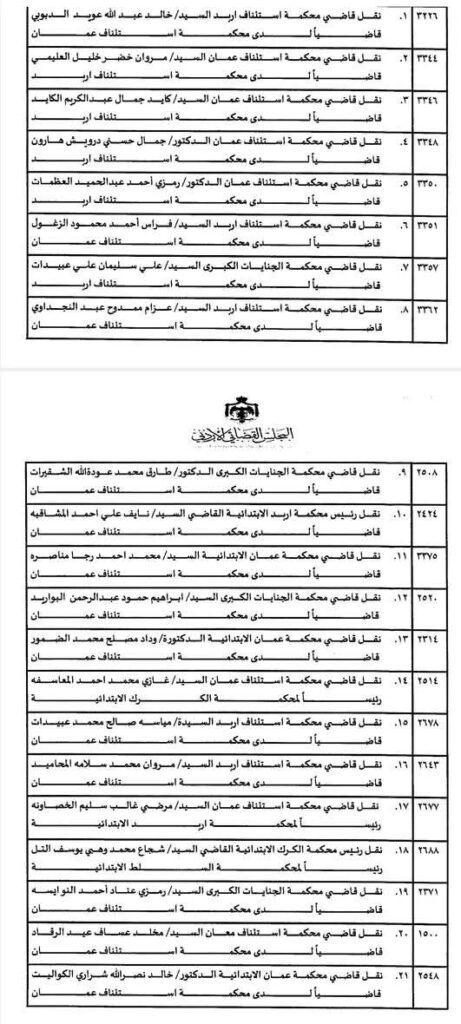 ٣٢٢٦ ١. نقل قاضي محكمة استئناف اربد السيد/ خالد عبد الله عويد الدبوبي
قاضياً لدى محكمة استئناف عمان
٣٣٤٤ ٢. نقل قاضي محكمة استئناف عمان السيد/ مروان خضر خليل العليمي
قاضياً لدى محكمة استئناف اربد
٣٣٤٦ ٣. نقل قاضي محكمة استئناف عمان السيد/ كايد جمال عبدالكريم الكايد
قاضياً لدى محكمة استئناف اربد
٣٣٤٨ ٤. نقل قاضي محكمة استئناف عمان الدكتور/ جمال حسني درويش هارون
قاضياً لدى محكمة استئناف اربد
٣٣٥٠ ٥. نقل قاضي محكمة استئناف عمان الدكتور/ رمزي أحمد عبدالحميد العظمات
قاضياً لدى محكمة استئناف اربد
٣٣٥١ ٦. نقل قاضي محكمة استئناف اربد السيد/ فراس أحمد محمود الزغول
قاضياً لدى محكمة استئناف عمان
٣٣٥٧ ٧. نقل قاضي محكمة الجنايات الكبرى السيد/ علي سليمان علي عبيدات
قاضياً لدى محكمة استئناف اربد
٣٣٦٢ ٨. نقل قاضي محكمة استئناف اربد السيد/ عزام ممدوح عبد النجداوي
قاضياً لدى محكمة استئناف عمان
المجلس القضائي الأردني
٢٥٠٨ ٩. نقل قاضي محكمة الجنايات الكبرى الدكتور/ طارق محمد عودةالله الشقيرات
قاضياً لدى محكمة استئناف عمان
٢٤٢٤ ١٠. نقل رئيس محكمة اربد الابتدائية القاضي السيد/ نايف علي احمد المشاقبه
قاضياً لدى محكمة استئناف عمان
٣٣٧٥ ١١. نقل قاضي محكمة عمان الابتدائية السيد/ محمد احمد رجا مناصره
قاضياً لدى محكمة استئناف عمان
٢٥٢٠ ١٢. نقل قاضي محكمة الجنايات الكبرى السيد/ ابراهيم حمود عبدالرحمن البواريد
قاضياً لدى محكمة استئناف عمان
٢٣١٤ ١٣. نقل قاضي محكمة عمان الابتدائية الدكتورة/ وداد مصلح محمد الضمور
قاضياً لدى محكمة استئناف عمان
٢٥١٤ ١٤. نقل قاضي محكمة استئناف عمان السيد/ غازي محمد احمد المعاسفه
رئيساً لمحكمة الكرك الابتدائية
٢٦٧٨ ١٥. نقل قاضي محكمة استئناف اربد السيدة/ مياسه صالح محمد عبيدات
قاضياً لدى محكمة استئناف عمان
٢٦٤٣ ١٦. نقل قاضي محكمة استئناف اربد السيد/ مروان محمد سلامه المحاميد
قاضياً لدى محكمة استئناف عمان
٢٦٧٧ ١٧. نقل قاضي محكمة استئناف عمان السيد/ مرضي غالب سليم الخصاونه
رئيساً لمحكمة اربد الابتدائية
٢٦٨٨ ١٨. نقل رئيس محكمة الكرك الابتدائية القاضي السيد/ شجاع محمد وهبي يوسف التل
رئيساً لمحكمة السلط الابتدائية
٢٣٧١ ١٩. نقل قاضي محكمة الجنايات الكبرى السيد/ رمزي عناد أحمد النوايسه
قاضياً لدى محكمة استئناف عمان
١٥٠٠ ٢٠. نقل قاضي محكمة استئناف معان السيد/ مخلد عساف عيد الرقاد
قاضياً لدى محكمة استئناف عمان
٢٥٤٨ ٢١. نقل قاضي محكمة عمان الابتدائية الدكتور/ خالد نصرالله شراري الكواليت
قاضياً لدى محكمة استئناف عمان